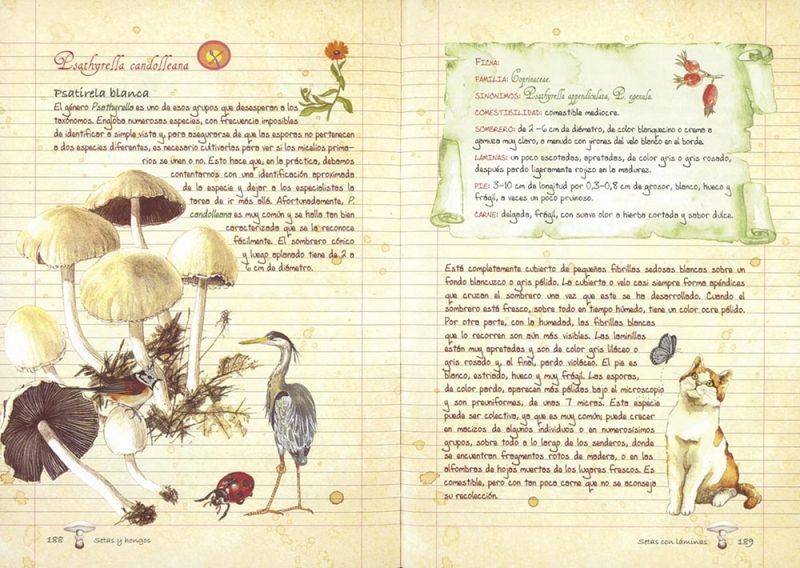 Psathyrella candolleana
Psatirela blanca
El género Psathyrella es uno de esos grupos que desesperan a los
taxónomos. Engloba numerosas especies, con frecuencia imposibles
de identificar a simple vista y, para asegurarse de que las esporas no pertenecen
a dos especies diferentes, es necesario cultivarlas para ver si los micelios prima-
rios se unen o no. Esto hace que, en la práctica, debamos
contentarnos con una identificación aproximada
de la especie y dejar a los especialistas la
tarea de ir más allá. Afortunadamente, P.
candolleana es muy común y se halla tan bien
caracterizada que se la reconoce
fácilmente. El sombrero cónico
y luego aplanado tiene de 2 a
6 cm de diámetro.
188 Setas y hongos
Ficha:
Familia: Coprinaceae.
Sinónimos: Psathyrella appendiculata, P. egenula.
Comestibilidad: comestible mediocre.
Sombrero: de 2-6 cm de diámetro, de color blanquecino o crema a
gamuza muy claro, a menudo con jirones del velo blanco en el borde.
Láminas: un poco escotadas, apretadas, de color gris o gris rosado,
después pardo ligeramente rojizo en la madurez.
Pie: 3-10 cm de longitud por 0,3-0,8 cm de grosor, blanco, hueco y
frágil, a veces un poco pruinoso.
Carne: delgada, frágil, con suave olor a hierba cortada y sabor dulce.
Está completamente cubierto de pequeñas fibrillas sedosas blancas sobre un
fondo blancuzco o gris pálido. La cubierta o velo casi siempre forma apéndices
que cruzan el sombrero una vez que este se ha desarrollado. Cuando el
sombrero está fresco, sobre todo en tiempo húmedo, tiene un color ocre pálido.
Por otra parte, con la humedad, las fibrillas blancas
que lo recorren son aún más visibles. Las laminillas
están muy apretadas y son de color gris liláceo o
gris rosado y, al final, pardo violáceo. El pie es
blanco, estriado, hueco y muy frágil. Las esporas,
de color pardo, aparecen más pálidas bajo el microscopio
y son preuniformes, de unas 7 micras. Esta especie
puede ser colectiva, ya que es muy común; puede crecer
en macizos de algunos individuos o en numerosísimos
grupos, sobre todo a lo largo de los senderos, donde
se encuentran fragmentos rotos de madera, o en las
alfombras de hojas muertas de los lugares frescos. Es
comestible, pero con tan poca carne que no se aconseja
su recolección.
Setas con láminas 189